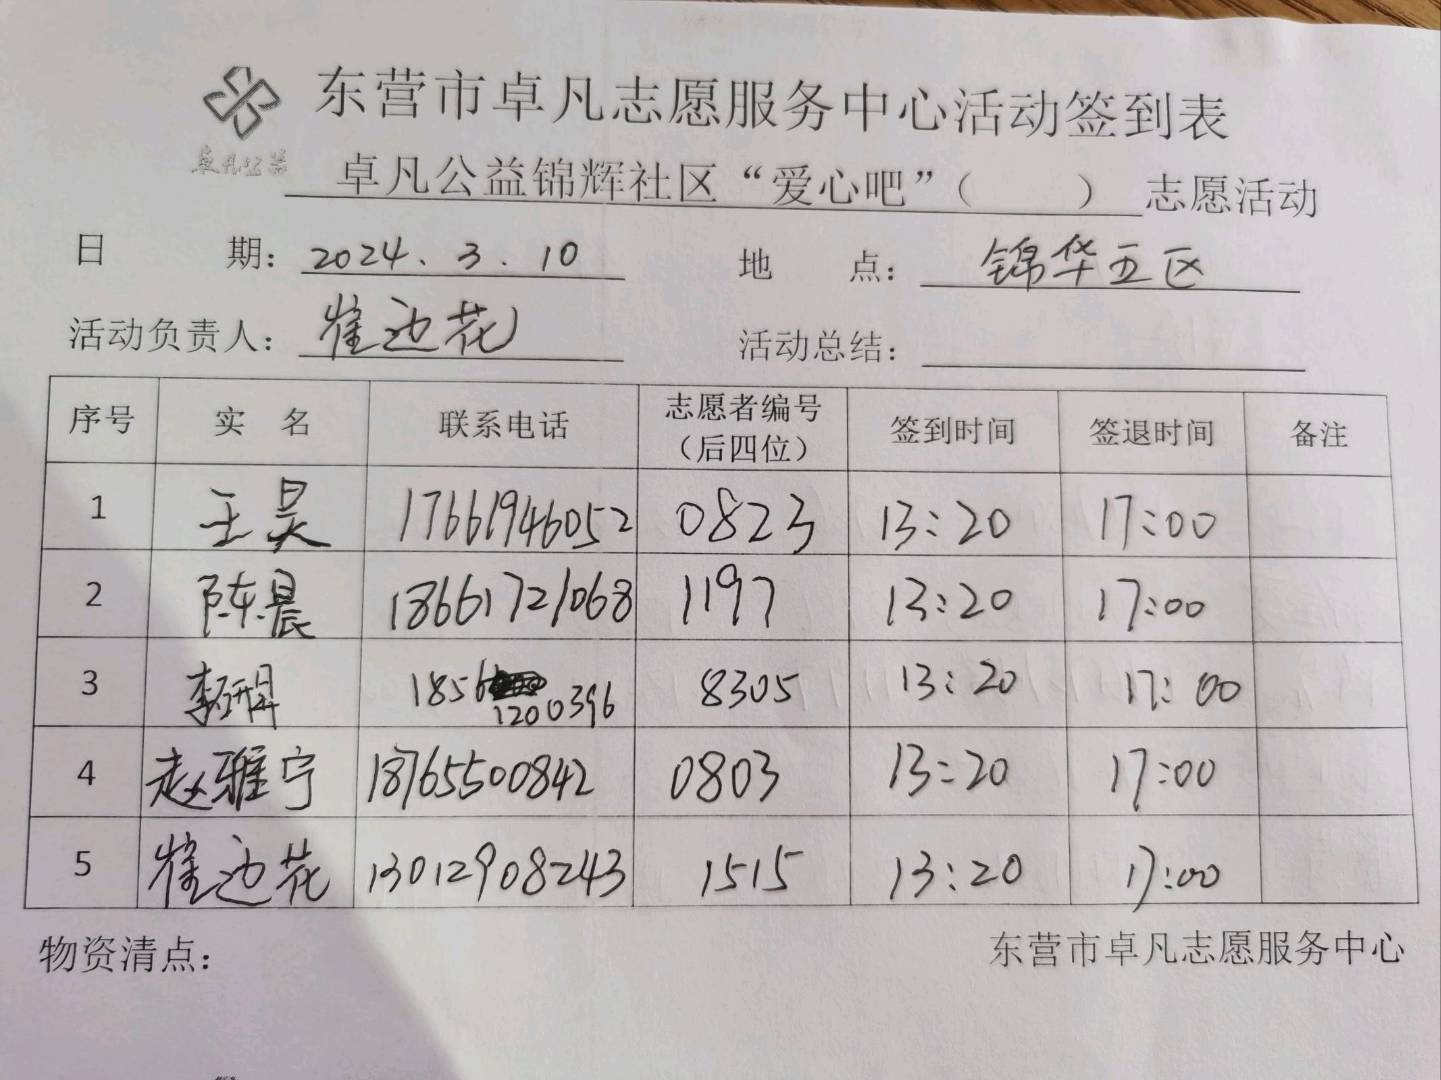 东营市卓凡志愿服务中心活动签到表
卓凡公益
卓凡公益锦辉社区“爱心吧”（ ）志愿活动
日 期：2024.3.10 地 点：锦华五区
活动负责人：崔边花 活动总结：
序号 实 名 联系电话 志愿者编号（后四位） 签到时间 签退时间 备注
1 王昊 17661946052 0823 13:20 17:00
2 陈晨 18661721068 1197 13:20 17:00
3 李 1856 1200396 8305 13:20 17:00
4 赵雅宁 18765500842 0803 13:20 17:00
5 崔边花 13012908243 1515 13:20 17:00
物资清点： 东营市卓凡志愿服务中心